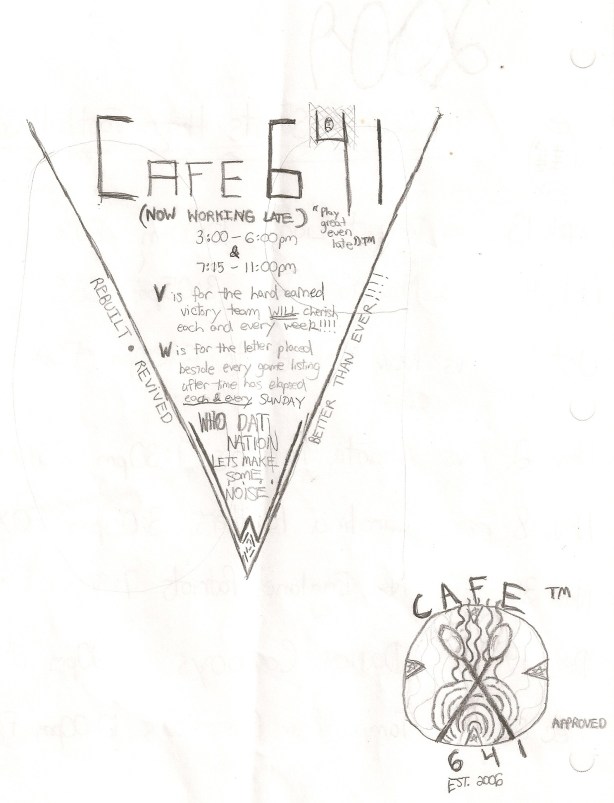 CAFE 641
(NOW WORKING LATE)
"Play
great
even
late" TM
3:00 - 6:00pm
&
7:15 - 11:00pm
V is for the hard earned
victory team WILL cherish
each and every week!!!!
W is for the letter placed
beside every game listing
after time has elapsed
each & every SUNDAY
WHO DAT
NATION
LETS MAKE
SOME
NOISE!
REBUILT • REVIVED
BETTER THAN EVER!!!!
CAFE TM
641
EST. 2006
APPROVED